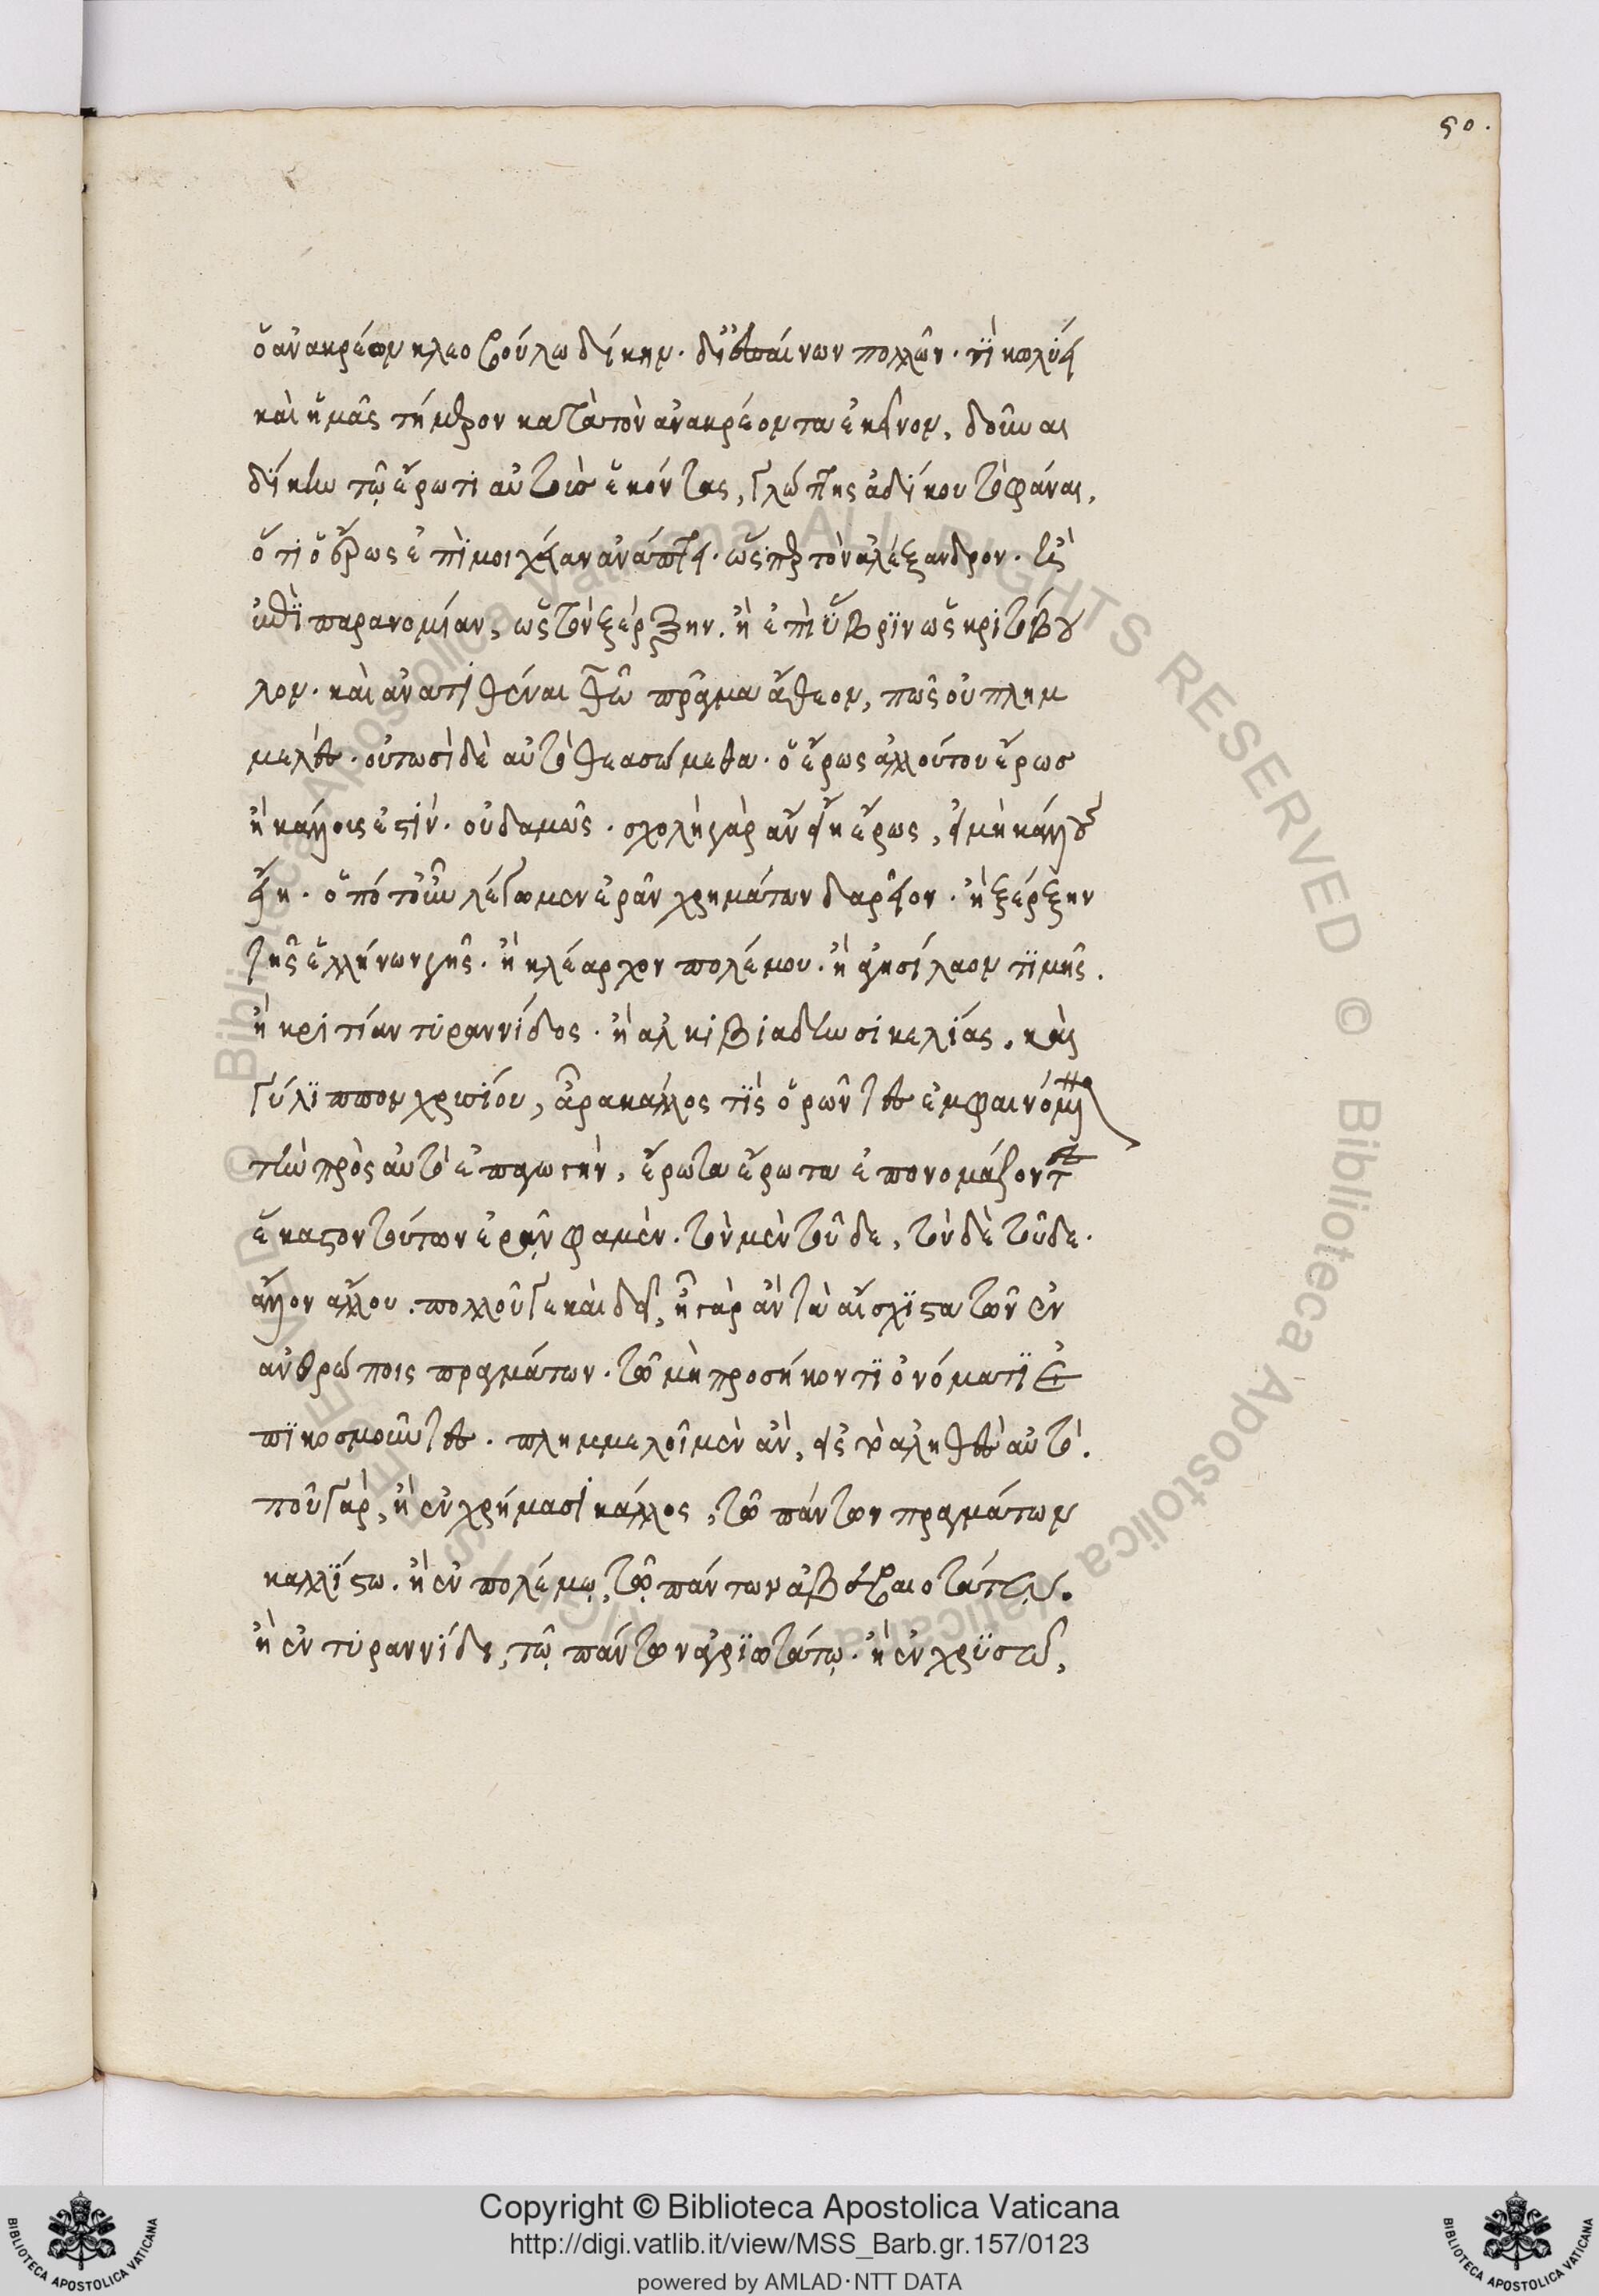 50.
ὁ ἀνακρέων κλεοβούλω δίκην. δι' ἐπαίνων πολλῶν. τί κωλύει
καὶ ἡμᾶς τήμερον κατὰ τὸν ἀνακρέοντα ἐκεῖνον, δοῦναι
δίκην τῷ ἔρωτι αὐτοὺς ἑκόντας, γλώττης ἀδίκου τὸ φάναι,
ὅτι ὁ ἔρως ἐπὶ μοιχείαν ἀνάπτει. ὥσπερ τὸν ἀλέξανδρον. εἰς
ἐπὶ παρανομίαν, ὡς τὸν ξέρξην. ἢ ἐπὶ ὕβριν ὡς κριτόβου
λον. καὶ ἀνατιθέναι θεῶ πρᾶγμα ἄθεον, πῶς οὐ πλημ
μελές. οὑτωσὶ δὲ αὐτὸ θεασώμεθα. ὁ ἔρως ἀλλού του ἔρως
ἢ κάλλους ἐστίν. οὐδαμῶς. σχολῇ γὰρ ἂν εἴη ἔρως, εἰ μὴ κάλλους
εἴη. ὁπότ' οὖν λέγωμεν ἐρᾶν χρημάτων δαρεῖον. ἢ ξέρξην
τῆς ἑλλήνων γῆς. ἢ κλέαρχον πολέμου. ἢ ἀγησίλαον τιμῆς.
ἢ κριτίαν τυραννίδος. ἢ ἀλκιβιάδην σικελίας. καὶ
γύλιππον χρυσίου, ἆρα κάλλος τι ὁρῶντες ἐμφαινόμενον
τὴν πρὸς αὐτὸ ἐπαγωγὴν, ἔρωτα ἔρωτα ἐπονομάζοντες
ἕκαστον τούτων ἐρᾶν φαμέν. τὸν μὲν τοῦδε, τὸν δὲ τοῦδε.
ἄλλον ἄλλου. πολλοῦ γε καὶ δεῖ, ἦ γὰρ ἂν τὰ αἴσχιστα τῶν ἐν
ἀνθρώποις πραγμάτων. τῶ μὴ προσήκοντι ὀνόματι ἐ
πικοσμοῦντες. πλημμελοῖμεν ἂν, εἰς τἀληθὲς αὐτό.
ποῦ γὰρ, ἢ ἐν χρήμασι κάλλος, τῶ πάντων πραγμάτων
καλλίστω. ἢ ἐν πολέμῳ, τῷ πάντων ἀβεβαιοτάτῳ.
ἢ ἐν τυραννίδι, τῷ πάντων ἀγριωτάτῳ. ἢ ἐν χρυσῶ,
Copyright © Biblioteca Apostolica Vaticana
http://digi.vatlib.it/view/MSS_Barb.gr.157/0123
powered by AMLAD·NTT DATA
BIBLIOTECA APOSTOLICA VATICANA
BIBLIOTECA APOSTOLICA VATICANA